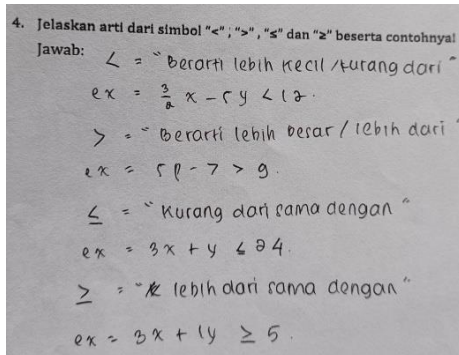 4. Jelaskan arti dari simbol "<" ; ">" , "≤" dan "≥" beserta contohnya!
Jawab:
< = "berarti lebih kecil / kurang dari"
ex = 3/2 x - 5y < 12.
> = "Berarti lebih besar / lebih dari"
ex = 5p - 7 > 9.
≤ = "Kurang dari sama dengan"
ex = 3x + y ≤ 24.
≥ = "lebih dari sama dengan"
ex = 3x + 1y ≥ 5.